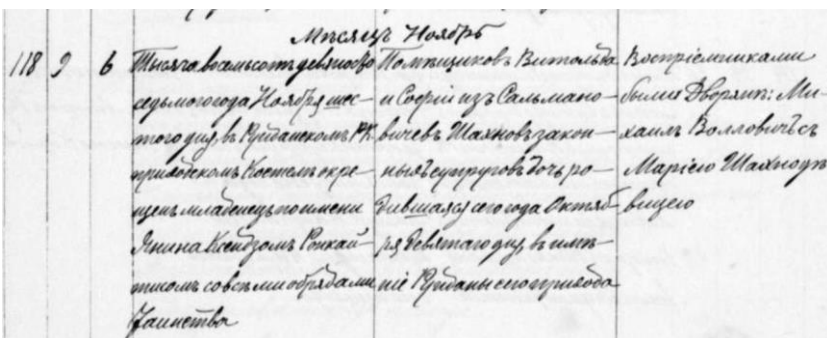 Мѣсяцъ Ноябрь
118 9 6
Тысяча восемьсотъ девяносто
седьмого года Ноября шес-
того дня, въ РК
приходскомъ Костелѣ окре-
щенъ младенецъ по имени
Янина Ксендзомъ
со всѣми обрядами
Таинства
Помѣщиковъ Витольда
и Софіи изъ Сальмано-
вичевъ Шахновъ закон-
ныхъ супруговъ дочь ро-
дившаяся сего года Октяб-
ря девятаго дня въ имѣ-
ніе сего прихода
Воспріемниками
были Дворяне: Ми-
хаилъ Волловичъ съ
Маріею